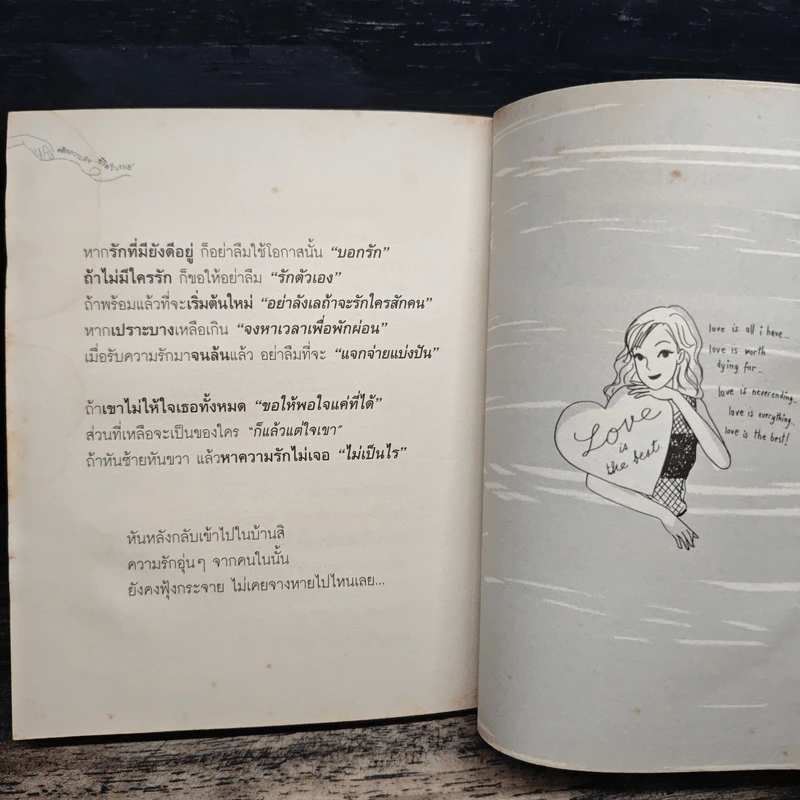 หากรักที่มียังดีอยู่ ก็อย่าลืมใช้โอกาสนั้น “บอกรัก”
ถ้าไม่มีใครรัก ก็ขอให้อย่าลืม “รักตัวเอง”
ถ้าพร้อมแล้วที่จะเริ่มต้นใหม่ “อย่าลังเลถ้าจะรักใครสักคน”
หากเปราะบางเหลือเกิน “จงหาเวลาเพื่อพักผ่อน”
เมื่อรับความรักมาจนล้นแล้ว อย่าลืมที่จะ “แจกจ่ายแบ่งปัน”
ถ้าเขาไม่ให้ใจเธอทั้งหมด “ขอให้พอใจแค่ที่ได้”
ส่วนที่เหลือจะเป็นของใคร “ก็แล้วแต่ใจเขา”
ถ้าหันซ้ายหันขวา แล้วหาความรักไม่เจอ “ไม่เป็นไร”
หันหลังกลับเข้าไปในบ้านสิ
ความรักอุ่นๆ จากคนในนั้น
ยังคงฟุ้งกระจาย ไม่เคยจางหายไปไหนเลย...
love is all i have...
love is worth
dying for...
love is neverending...
love is everything...
love is the best!
Love
is
the best.